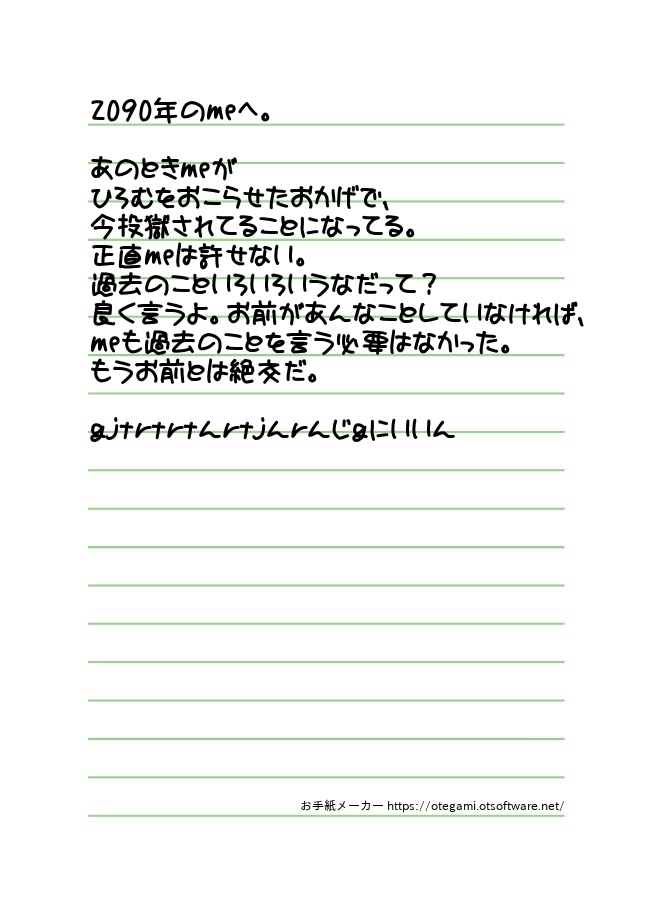 2090年のmeへ。
あのときmeが
ひろむをおこらせたおかげで、
今投獄されてることになってる。
正直meは許せない。
過去のこといろいろいうなだって？
良く言うよ。お前があんなことしていなければ、
meも過去のことを言う必要はなかった。
もうお前とは絶交だ。
gjtrtrtんrtjんrんじgにいいん
お手紙メーカー https://otegami.otsoftware.net/